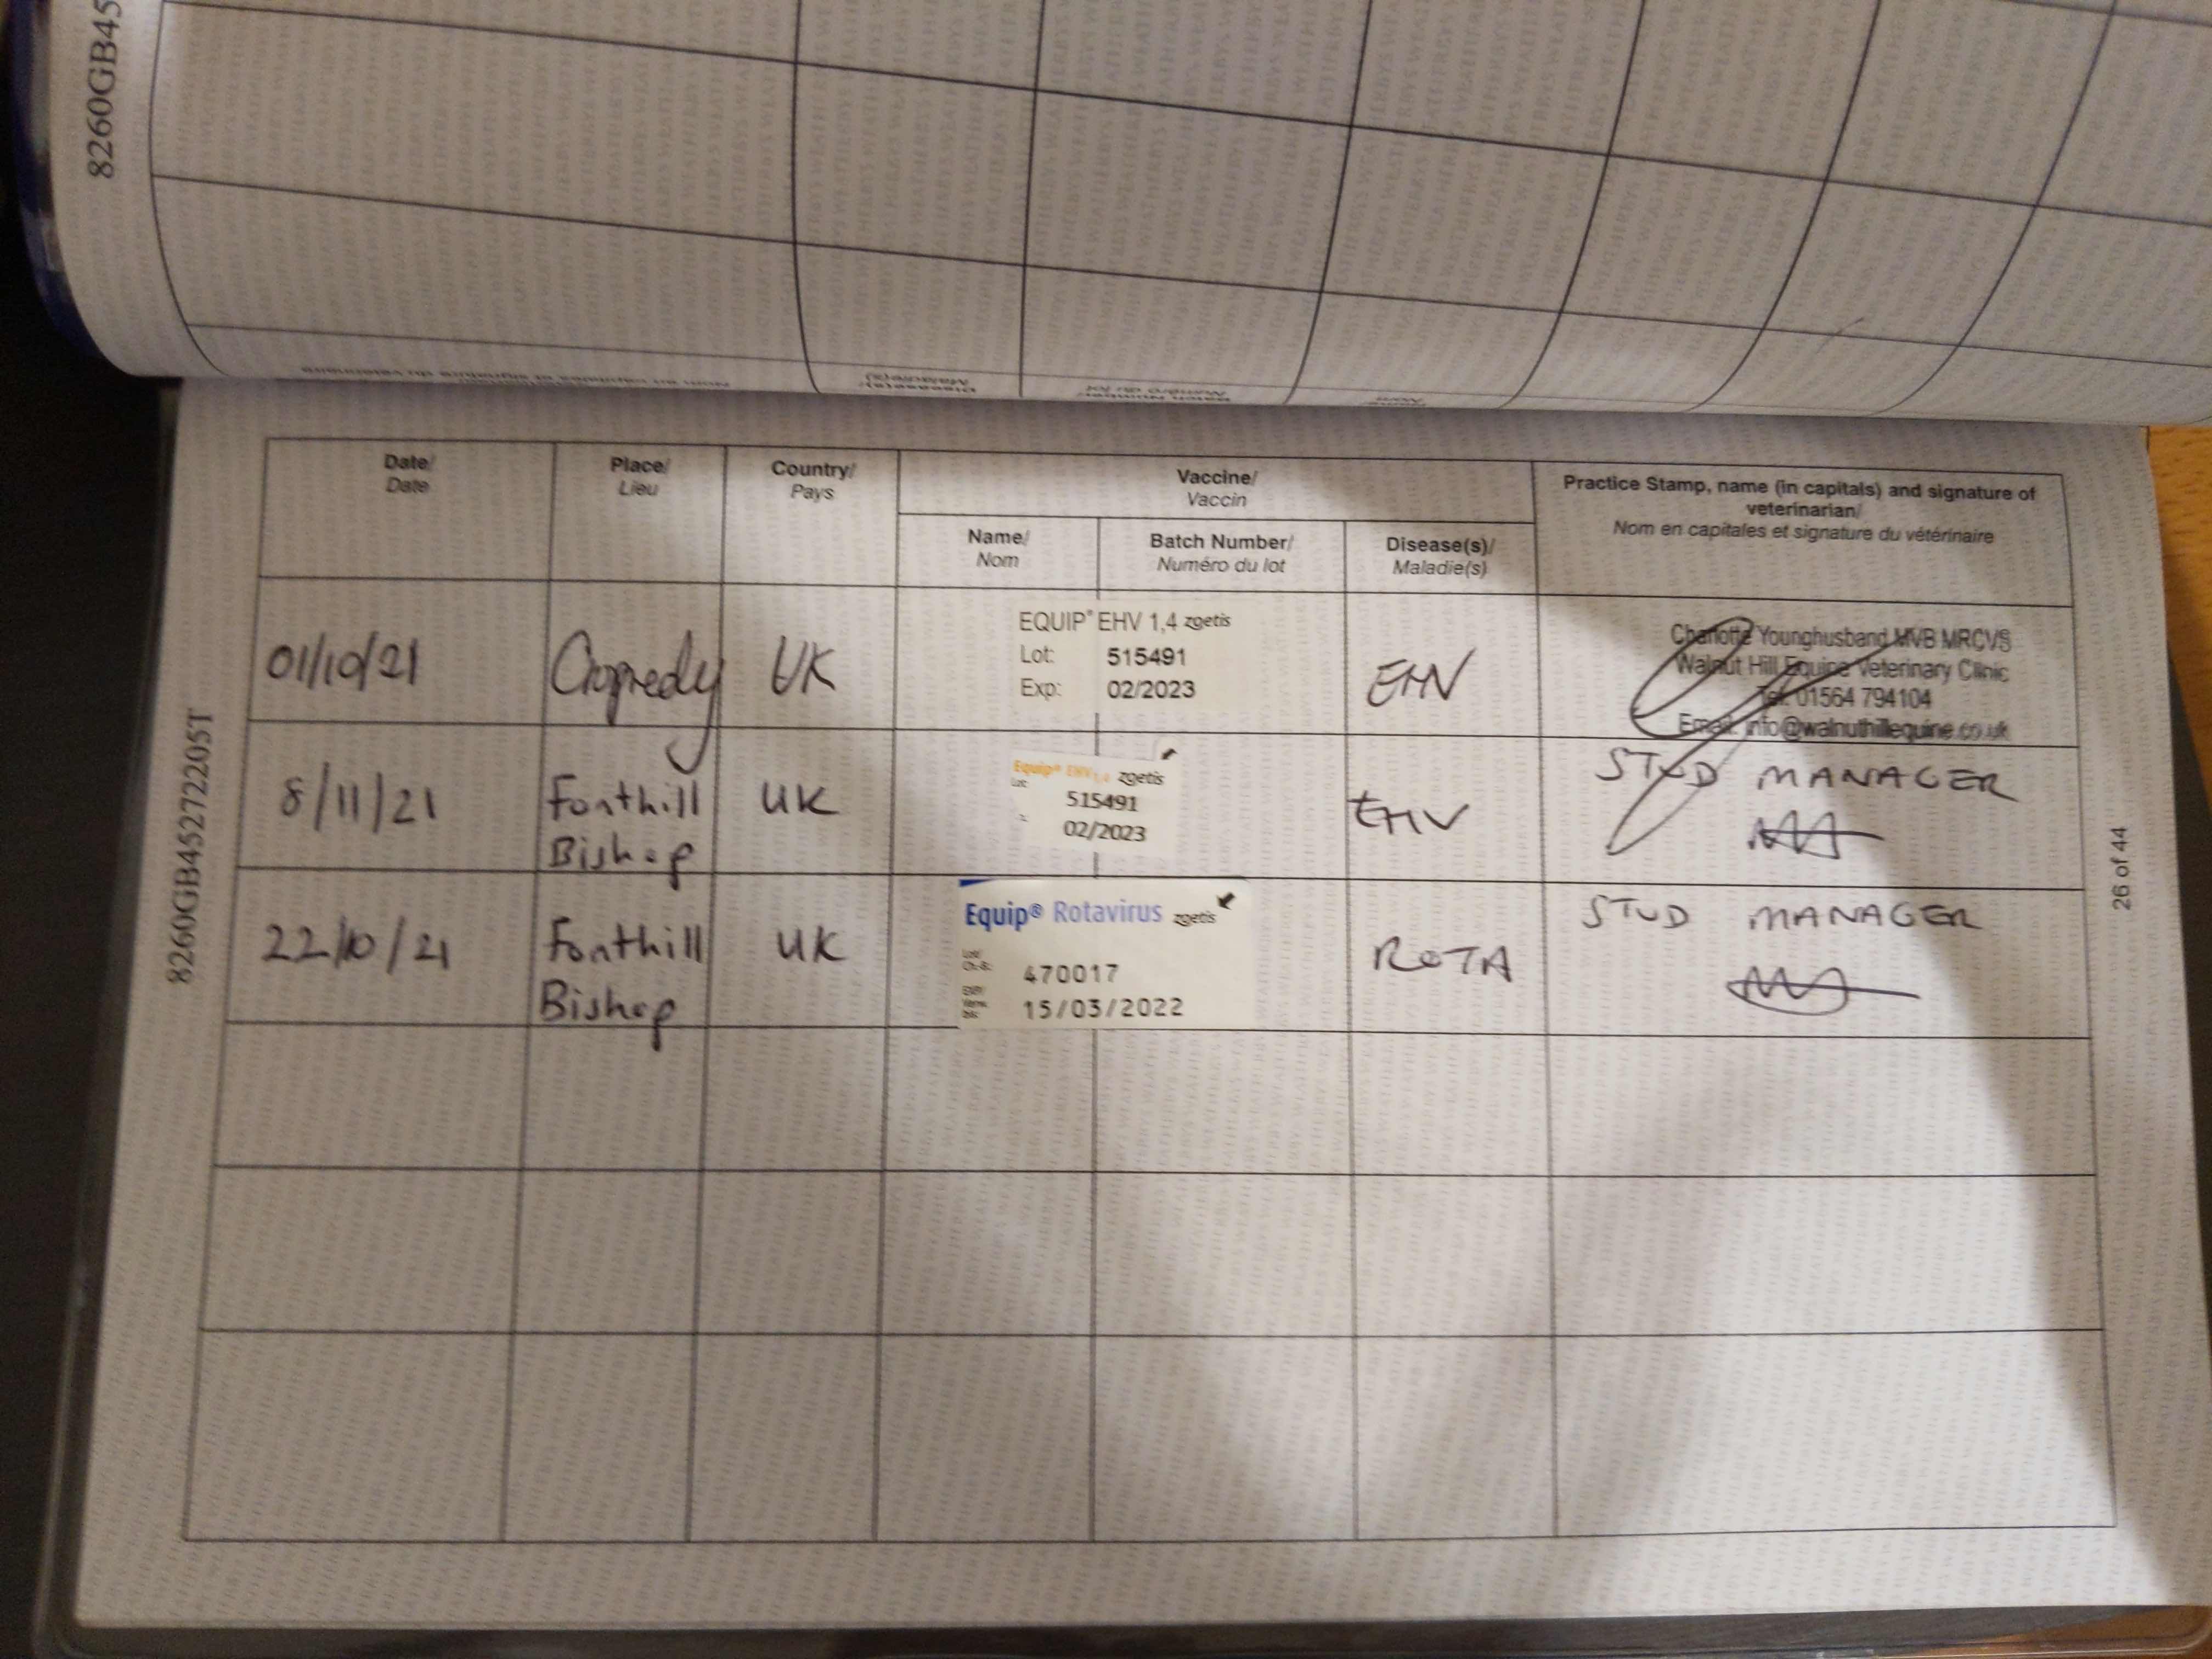 8260GB45
Date/
Date
Place/
Lieu
Country/
Pays
Vaccine/
Vaccin
Name/
Nom
Batch Number/
Numéro du lot
Disease(s)/
Maladie(s)
Practice Stamp, name (in capitals) and signature of
veterinarian/
Nom en capitales et signature du vétérinaire
01/10/21
Cropredy
UK
EQUIP® EHV 1,4 zoetis
Lot: 515491
Exp: 02/2023
EHV
Charlotte Younghusband MVB MRCVS
Walnut Hill Equine Veterinary Clinic
Tel: 01564 794104
Email: info@walnuthillequine.co.uk
8/11/21
Fonthill
Bishop
UK
Equip® EHV 1,4 zoetis
515491
02/2023
EHV
STUD MANAGER
22/10/21
Fonthill
Bishop
UK
Equip® Rotavirus zoetis
470017
15/03/2022
ROTA
STUD MANAGER
8260GB45272205T
26 of 44